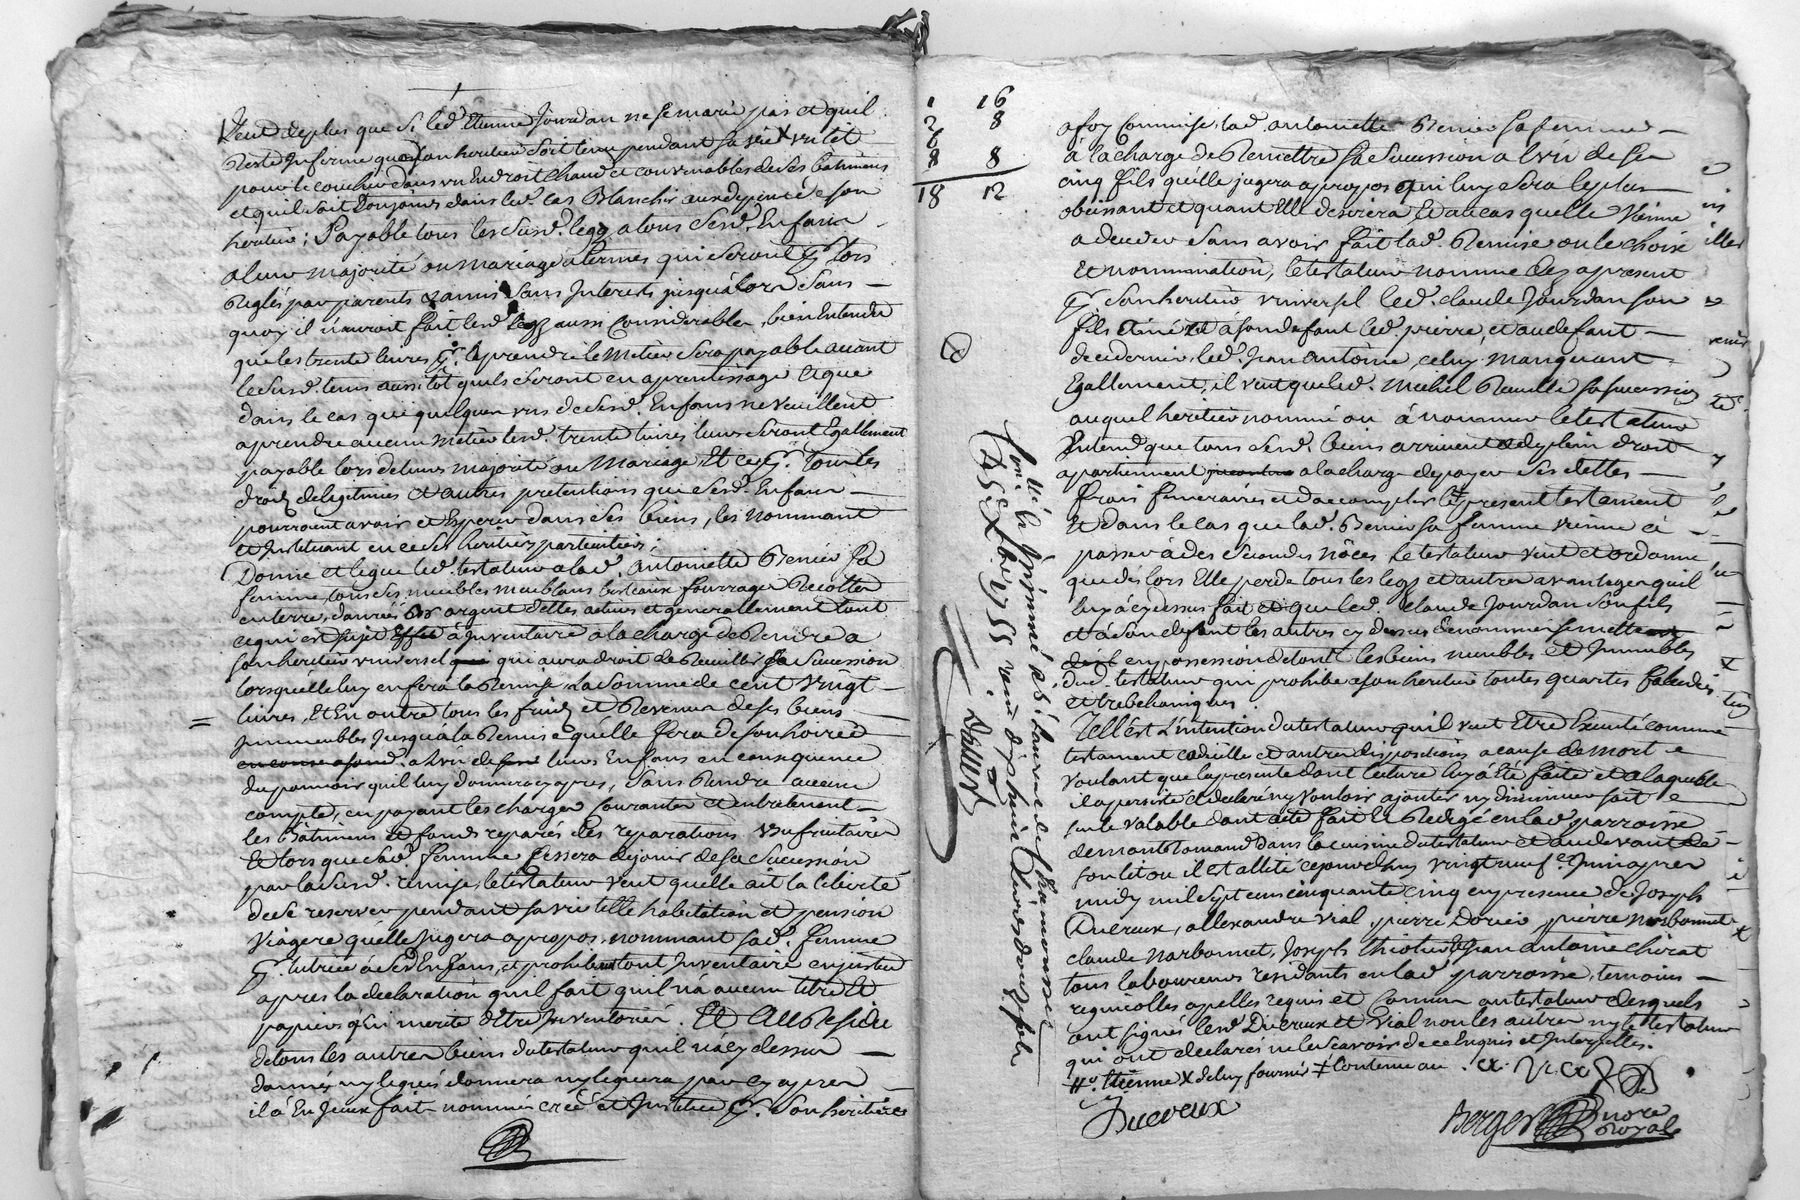 Veut deplus que si led. Etienne Jourdan ne se marie pas et quil
reste Infirme que son heritier soit tenu pendant sa vie X un lit
pour le coucher dans un Endroit chaud et convenables de ses batimens
et quil soit toujours dans led. cas Blanchi aux depens de son
heritier; Payable tous les susd. legz a tous sesd. Enfans
a leur majorité ou mariage a termes qui seront pr. lors
Reglés par parents & amis sans Interets jusqu'alors sans
quoy il n'auroit fait lesd. legz aussi Considerables, bien Entendu
que les trente livres pr. aprendre le Metier sera payable avant
le susd. tems aussitôt quils seront en aprentissage et que
dans le cas que quelquun de sesd. Enfans ne veuillent
aprendre aucun Metier lesd. trente livres leurs seront Egallement
payable lors de leurs majorité ou Mariage Et ce pr. tous les
droits de legitimes et autres pretentions que sesd. Enfans
pourroient avoir et Esperer dans ses biens, les nommant
et Instituant en ce ses heritiers particuliers;
Donne et legue led. testateur a lad. antoinette Renier sa
femme, tous ses meubles meublans, bestiaux fourrages Recoltes
en terre, danrées or argent dettes actives et generallement tout
ce qui est sujet à Inventaire a la charge de Rendre a
son heritier universel qui aura droit de Receuillir sa Sucession
lorsquelle luy en fera la Remise La somme de cent vingt
livres, Et En outre tous les fruits et Revenus de ses biens
Immeubles Jusqua la Remise quelle fera de son hoirie
a l'un de leurs Enfans en consequence
du pouvoir quil luy donnera cy apres, sans Rendre aucun
compte, en payant les charges Courantes et entretenant
les Batimens et fonds reparés des reparations usufruitaires
Et lors que sad. femme Cessera de jouir de sa Sucession
par la susd. remise, le testateur veut quelle ait la liberté
de se reserver pendant sa vie telle habitation et pension
viagere quelle Jugera apropos, nommant sad. femme
pr. tutrice à sesd. Enfans, et prohibant tout Inventaire en justice
apres la declaration quil fait quil n'a aucun titre et
papiers qui merite d'être Inventoriés. Et Au Residu
de tous les autres biens du testateur quil n'a cy dessus
donnés ny legués donnera ny leguera par cy apres
il a En Jceux fait nommé créé et Institué pr. son heritiere
1 16
2 8
6
8 8
18 12
a foy Commise lad. antoinette Renier sa femme
à la charge de Remettre sa Sucession a l'un de ses
cinq fils quelle jugera apropos qui luy sera le plus
obeissant et quant Elle desirera Et au cas quelle vienne
a deceder sans avoir fait lad. Remise ou le choix
Et nommination, le testateur nomme dez apresent
pr. son heritier universel led. claude Jourdan son
fils Ainé et à son defaut led. pierre, et au defaut
de ce dernier led. Jean antoine, celuy manquant
Egallement, il veut que led. Michel Receuille sa sucession
auquel heritier nommé ou à nommer le testateur
Entend que tous sesd. biens arrivent et de plein droit
apartiennent a la charge de payer ses dettes
frais funeraires et d'accomplir le present testament
Et dans le cas que lad. Renier sa femme vienne a
passer à des secondes nôces le testateur veut et ordonne
que dès lors Elle perde tous les legs et autres avantages quil
luy a cy dessus fait et que led. Claude Jourdan son fils
et à son defaut les autres cy dessus denommés se mette
en possession de tous les biens meubles et Immeubles
dud. testateur qui prohibe a son heritier toutes quartes falcidies
et trebelianiques.
Tell est L'intention du testateur quil veut Etre Executé comme
testament codicille et autres dispositions a cause de mort
voulant que la presente dont lecture luy a Eté faite et a laquelle
il a persisté et declaré ny vouloir ajouter ny diminuer soit
seule valable dont acte fait et Redigé en lad. parroisse
de montromand dans la cuisine du testateur et au devant de
son lit ou il est allité cejourdhuy vingt neuf Juin apres
midy mil sept cens cinquante cinq en presence de Joseph
Ducreux, allexandre vial, pierre Dorier, pierre Narbonnet
claude Narbonnet, Joseph thiolier et Jean antoine chirat
tous laboureurs residants en lad. parroisse, temoins
regnicolles apellés requis et Connus au testateur desquels
ont signés lesd. Ducreux et Vial non les autres ny le testateur
qui ont declarés ne le sçavoir de ce Enquis et Interpellés.
Etienne X de luy fournir ‡ Contenu au
Ducreux
Berger nore
Royal
Conll. & Insinué a St. laurent de chamousset
le 5e Xbre 1755 reçu dixhuit livres douze sols